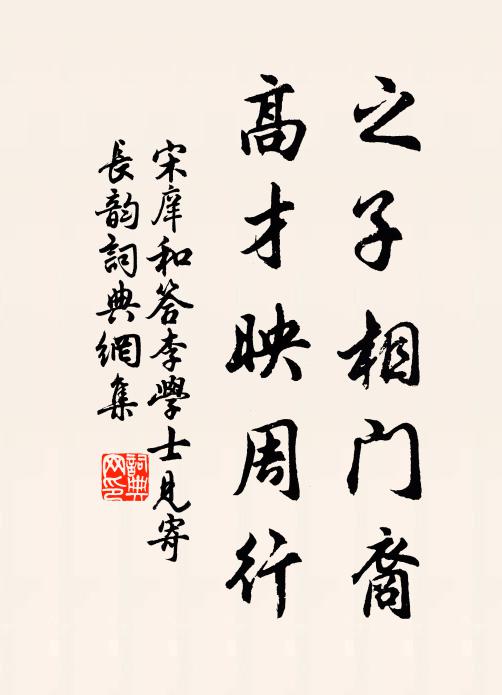 之子相門裔
高才映周行
宋庠和答李學士見寄
長韵詞典網集
詞典网印